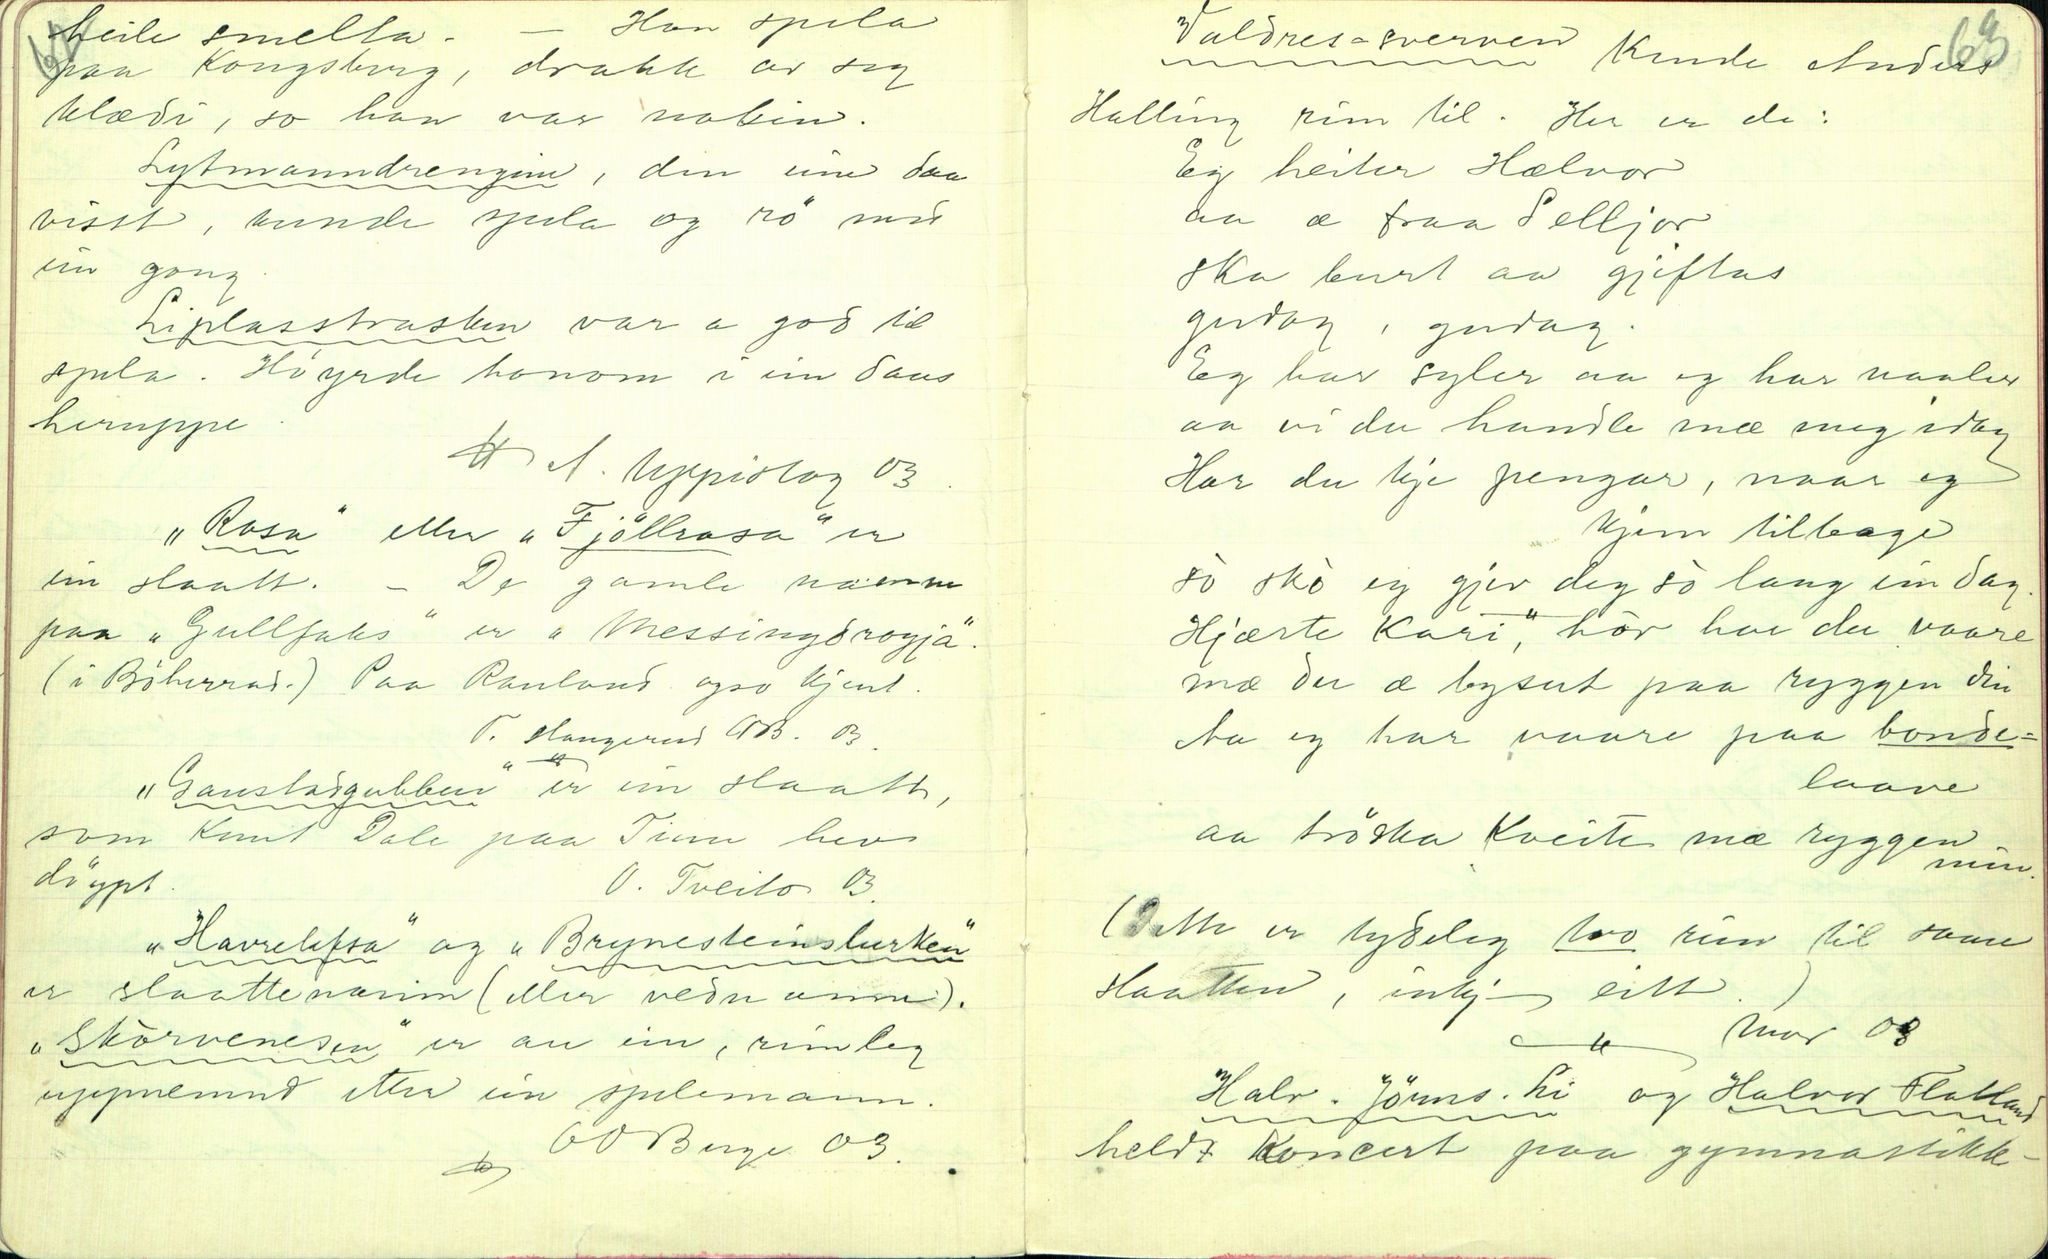 heile smelta. – Han spela
paa Kongsberg, drakk av seg
klædi, so han var nakin.
Lytmanndrengine, den eine daa
visst, kunde spela og rö med
ein gong.
Liplasstrasken var a god til
spela. Höyrde honom i ein dans
heruppe.
A. Uppistog 03.
"Rosa" eller "Fjöllrosa" er
ein slaatt. – De gamle namne
paa "Gullfaks" er "Messingdrogja".
(i Böherrad.) Paa Rauland ogso kjent.
T. Slangerud AB. 03.
"Gaustadgubben" er ein slaatt,
som Knut Dale paa Tinn hev
döypt. O. Tveito 03.
"Havrelefsa" og "Brynesteinslurken"
er slaattenamn (eller vednamn).
"Skorvenesen" er au ein, rimleg
uppnemnd etter ein spelemann.
OO Berge 03.
63
Valdres-sverven kunde Anders
Halling rim til. Her er de:
Eg heiter Hælvor
aa æ fraa Selljor
ska burt aa gjiftas
gudag, gudag.
Eg har syler aa eg har naaler
aa vi du handle mæ meg idag
Har du kje pengar, naar eg
kjem tilbage
so sko eg gjev deg so lang ein dag.
Hjærte Kari, hör har du vaare
mæ du æ bysut paa ryggen din
Aa eg har vaare paa bonde=
laave
aa tröska Kveite mæ ryggen
min.
(Dette er tydeleg tvo rim til same
slaatten, inkje eitt.)
Mor 03
Halv. Jörns. Li og Halvor Flatland
heldt koncert paa gymnastikk-